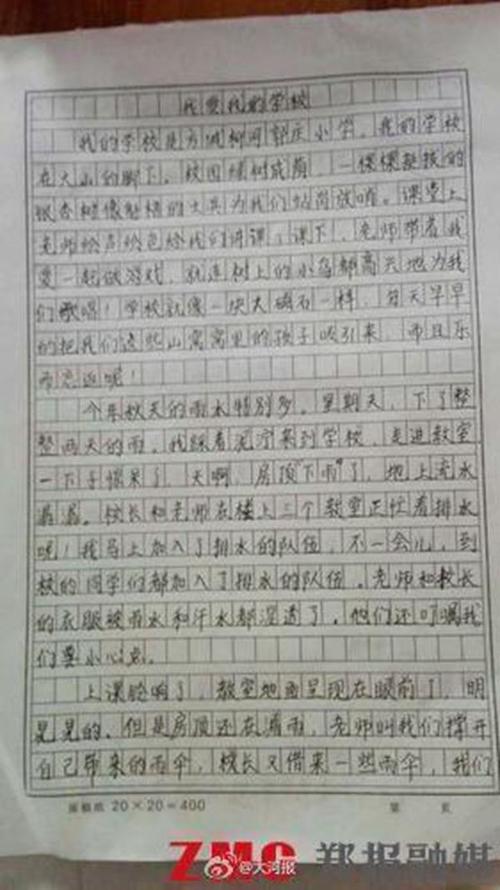 我爱我的学校
我的学校是方城柳河郭庄小学。我的学校
在大山的脚下。校园绿树成荫，一棵棵挺拔的
银杏树像魁梧的士兵为我们站岗放哨。课堂上
老师绘声绘色给我们讲课；课下，老师带着我
爱一起做游戏，就连树上的小鸟都高兴地为我
们歌唱！学校就像一块大磁石一样，每天早早
的把我们这些山窝窝里的孩子吸引来，而且乐
而忘返呢！
今年秋天的雨水特别多。星期天，下了整
整两天的雨。我踩着泥泞来到学校，走进教室
一下子惊呆了，天啊，房顶"下雨"了，地上充水
晶晶。校长和老师在楼上三个教室正忙着排水
呢！我马上加入了排水的队伍，不一会儿，到
校的同学们都加入了排水的队伍。老师和校长
的衣服被雨水和汗水都湿透了，他们还叮嘱我
们要小心点。
上课铃响了，教室地面呈现在眼前了，明
晃晃的。但是房顶还在漏雨，老师叫我们撑开
自己带来的雨伞，校长又借来一些雨伞，我们
原稿纸 20×20=400 第 页
ZMC 郑报融媒
@大河报